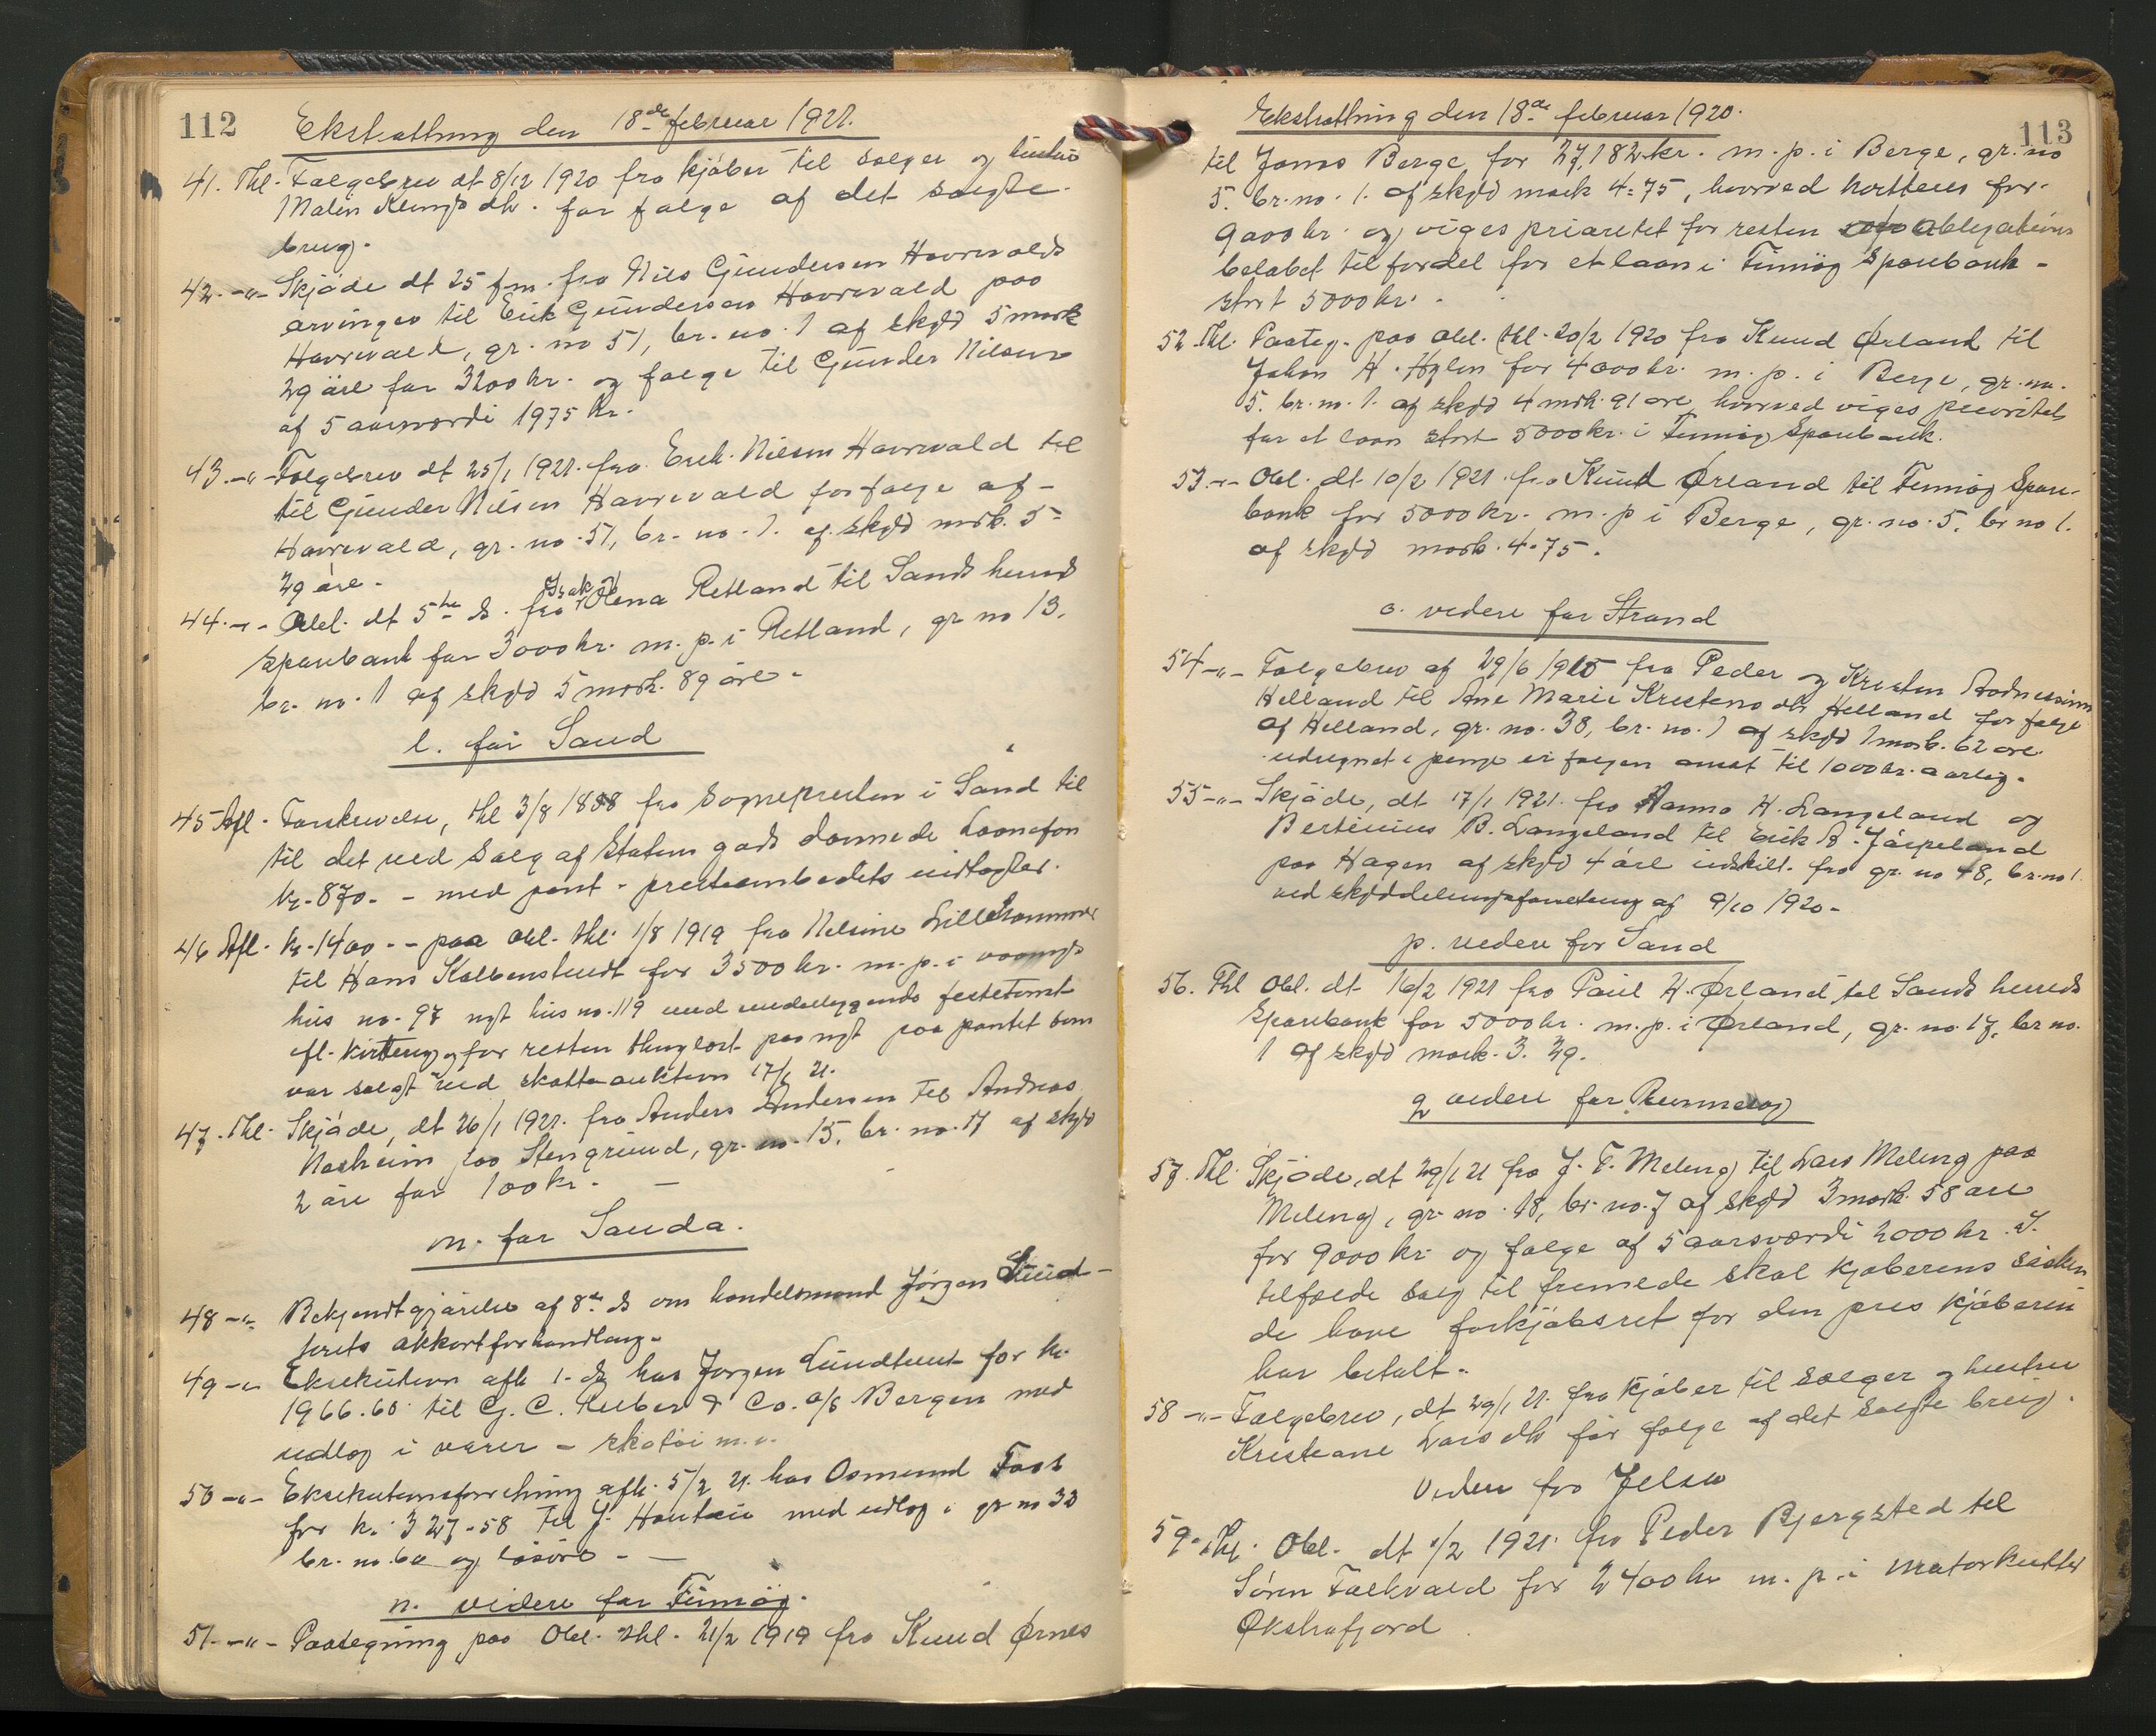 112
Ekstrathing den 18de februar 1921.
41. Thl. Følgebrev dt 8/12 1920 fra kjøber til sælger og hustru
Malin dtr. for følge af det solgte
brug.
42. -"- Skjøde dt 25 f.m. fra Nils Gundersen Havrevolds
arvinger til Erik Gundersen Havrevald paa
Havrevald, gr. no 51, br. no. 1 af skyld 5 mark
29 øre for 3200 kr. og følge til Gunder Nilsen
af 5 aarsværdi 1975 kr.
43. -"- Følgebrev dt 25/1 1921. fra Erik Nilsen Havrevald til
til Gunder Nilsen Havrevald for følge af
Havrevald, gr. no. 51, br. no. 1. af skyld mrk. 5-
29 øre.
44. -"- Obl. dt 5te ds. fra Isak Olena Retland til Sands herreds
sparebank for 3000 kr. m. p. i Retland, gr no 13.
br. no. 1 af skyld 5 mark. 89 øre.
l. for Sand
45 Afl. Forskrivelse, thl 3/8 1888 fra Sognepresten i Sand til
til det ved Salg af Statens gods dannede Laanefon
kr. 870. - med pant - presteembedets indtægter.
46 Afl. kr. 1400 - - paa obl. thl. 1/8 1919 fra Nelsine Lillehammer
til Hans Kolbenstvedt for 3500 kr. m. p. i vaanings
hus no. 97 nyt hus no. 119 med underliggende festetomt
efl. kvittering og for resten thinglæst paa nyt paa pantet som
var solgt ved skatteauktion 17/1 21.
47. Thl. Skjøde, dt 26/1 1921. fra Anders Andersen til Andreas
Næsheim paa Stengrund, gr. no. 15, br. no. 17 af skyld
2 øre for 100 kr. -
m. for Sauda.
48 -"- Bekjendtgjørelse af 8de ds om handelsmand Jørgen Lund-
tveits akkordforhandling.
49 -"- Eksekution afh 1. ds hos Jørgen Lundtveit for kr.
1966.60 til G. C. Rieber & Co. a/s Bergen med
udlæg i varer - skotøi m.v.
50 -"- Eksekutionsforretning afh. 5/2 21. hos Osmund
for kr. 327.58 til J. med udlæg i gr no 33
br. no. 60 og løsøre -
n. videre for Finnøy.
51. -"- Paategning paa Obl. thl. 21/2 1919 fra Knud Ørnes
113
Ekstrathing den 18de februar 1920.
til Jonas Berge for 27,182 kr. m. p. i Berge, gr. no
5. br. no. 1. af skyld mark 4-75, hvorved kvitteres for
9000 kr. og viges prioritet for resten obligations
beløbet til fordel for et laan i Finnøy Sparebank -
stort 5000 kr.
52. Thl. Paateg. paa obl. thl. 20/2 1920 fra Knud Ørland til
Johan H. Hylen for 4000 kr. m. p. i Berge, gr. no.
5. br. no. 1. af skyld 4 mrk. 91 øre hvorved viges prioritet
for et laan stort 5000 kr. i Finnøy Sparebank.
53 -"- Obl. dt 10/2 1921 fra Knut Ørland til Finnøy Spare-
bank for 5000 kr. m. p i Berge, gr. no. 5. br no 1.
af skyld mark. 4.75.
o. videre for Strand
54 -"- Følgebrev af 29/6 1915 fra Peder og Kristen Aadnessønn
Helland til Ane Marie Kristens dtr Helland for følge
af Helland, gr. no. 38, br. no. 1 af skyld 1 mark. 62 øre
udregnet i penge er følgen ansat til 1000 kr. aarlig.
55 -"- Skjøde, dt 17/1 1921. fra Hanna H. Langeland og
Bertinius B. Langeland til Erik B. Jørpeland
paa Hagen af skyld 4 øre udskilt fra gr. no 48, br. no 1.
ved skylddelingsforretning af 9/10 1920.
p. videre for Sand
56. Thl Obl. dt 16/2 1921 fra Paul H. Ørland til Sands herreds
Sparebank for 5000 kr. m. p. i Ørland, gr. no. 17, br no.
1 af skyld mark. 3. 29.
q videre for Rennesøy
57. Thl. Skjøde, dt 29/1 21 fra J. T. Meling til Lars Meling paa
Meling, gr. no. 18, br. no. 7 af skyld 3 mark. 58 øre
for 9000 kr og følge af 5 aarsværdi 2000 kr. I
tilfælde salg til fremmede skal kjøberens søsken
de have forkjøbsret for den pris kjøberen
har betalt.
58 -"- Følgebrev, dt 29/1 21. fra kjøber til sælger og hustru
Kristiane Larsdtr for følge af det solgte brug.
Videre for Jelsa
59. Thl. Obl. dt 1/2 1921. fra Peder Bjergsted til
Søren Falkvald for 2400 kr m. p. i motorkutter
Økstrafjord